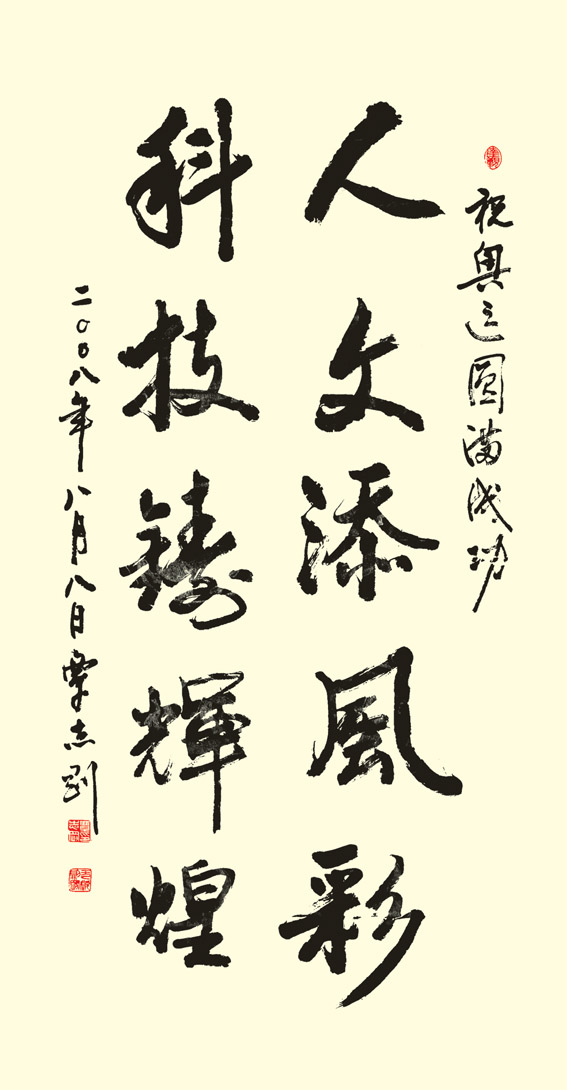 祝奥运圆满成功
人文添風彩
科技鑄輝煌
二〇〇八年八月八日覃志剛